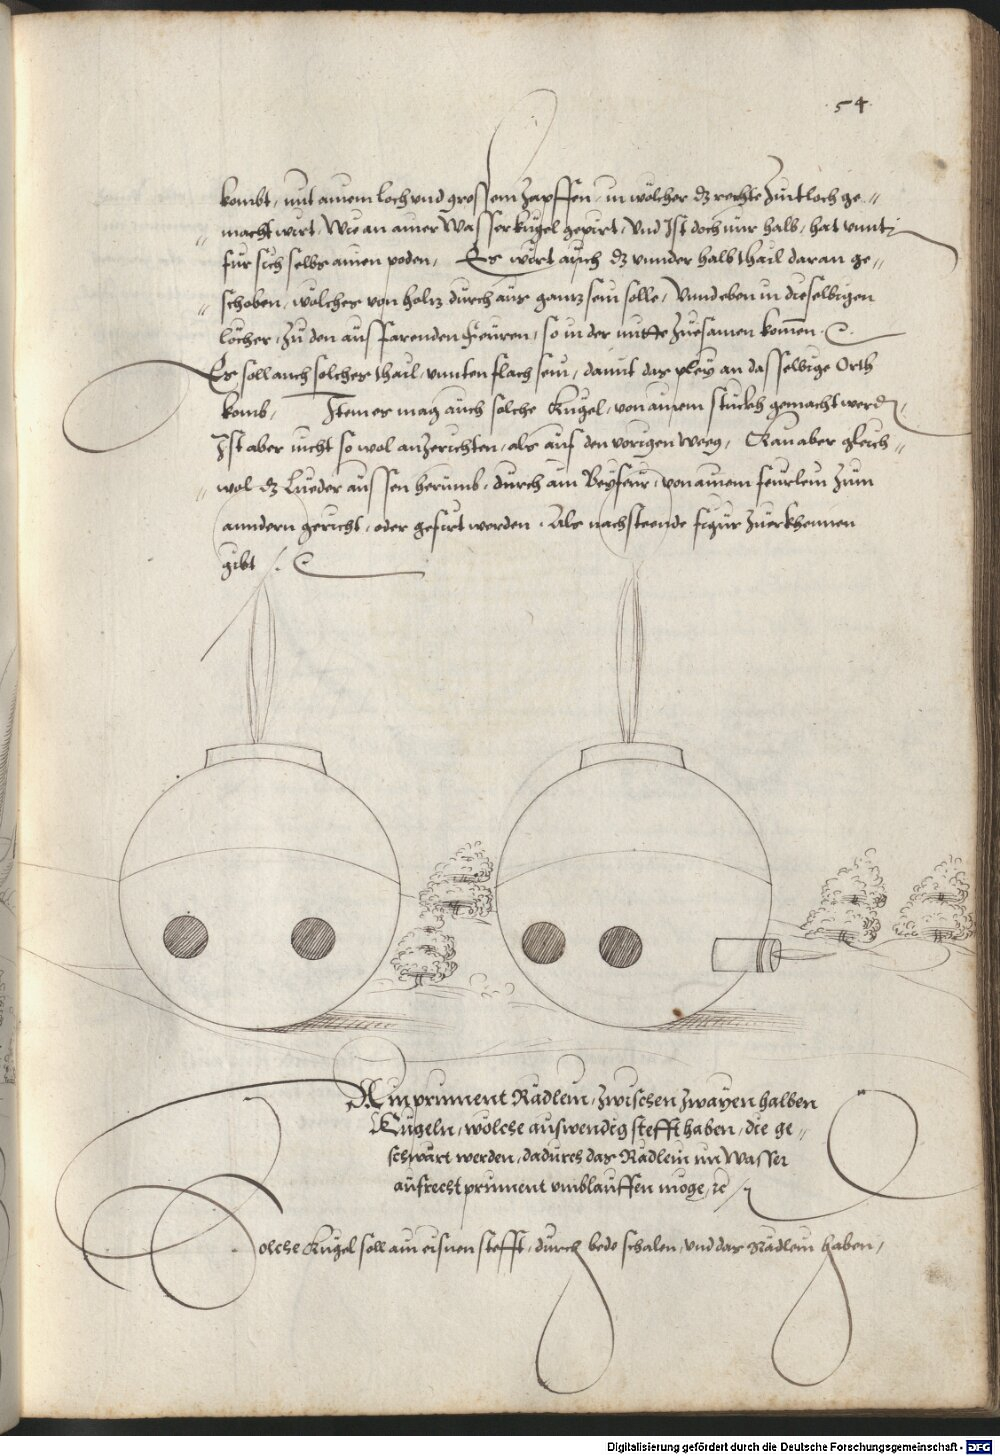 54
kombt, mit ainem loch und grossem Zapffen, in wölcher dz rechte Zündtloch ge-"
" macht wirt, Wie an ainer Wasserkugel gepirt, Und Ist doch nur halb, hat unnd
für sich selbs ainen poden, Es wirt auch dz unnder halb thail daran ge"
" schoben, wölches von holtz durch aus gantz sein solle, Unnd eben in dieselbigen
löcher, Zu den aus farenden Feüren, so in der mitte Zuesamen komen.
Es soll auch solches thail, unnten flach sein, damit das pley an dasselbige Orth
komb, Item es mag auch solche Kugel, von ainem stuckh gemacht werdn,
Ist aber nicht so wol anzerichten, als auf den vorigen weeg, Kan aber gleich"
" wol dz Lueder aussen herumb, durch ain Beyfeur, von ainem feurlein Zum
anndern gericht, oder gefürt werden. Als nachsteende figur Zuerkhennen
gibt
Ain prinnent Rädlein, Zwischen Zwayen halben
Kugeln, wölche auswendig stefft haben, die ge"
schwärt werden, dadurch das Rädlein im Wasser
aufrecht prinnent umblauffen möge, rc
olche Kugel soll ain eisnen stefft, durch bede schalen, und das Rädlein haben,
Digitalisierung gefördert durch die Deutsche Forschungsgemeinschaft - DFG